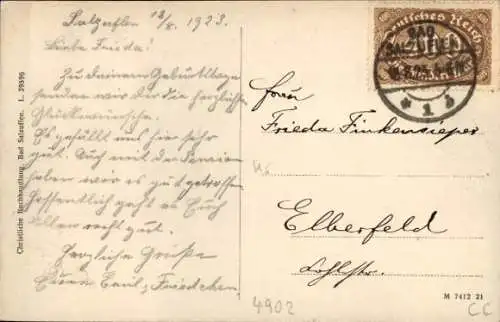 Salzuflen 18/8. 1923.
Liebe Frieda!
Zu deinem Geburtstage
senden wir dir die herzlichsten
Glückwünsche.
Es gefällt uns hier sehr
gut. Auch mit der Pension
haben wir es gut getroffen
Hoffentlich geht es Euch
Allen recht gut.
Herzliche Grüße
Euer Emil, Friedchen
Christliche Buchhandlung, Bad Salzuflen. L. 39596
Deutsches Reich
BAD
SALZUFLEN
* 1 b
Frau
Frieda Finkensieper
Elberfeld
M 7412 21
4902
CC